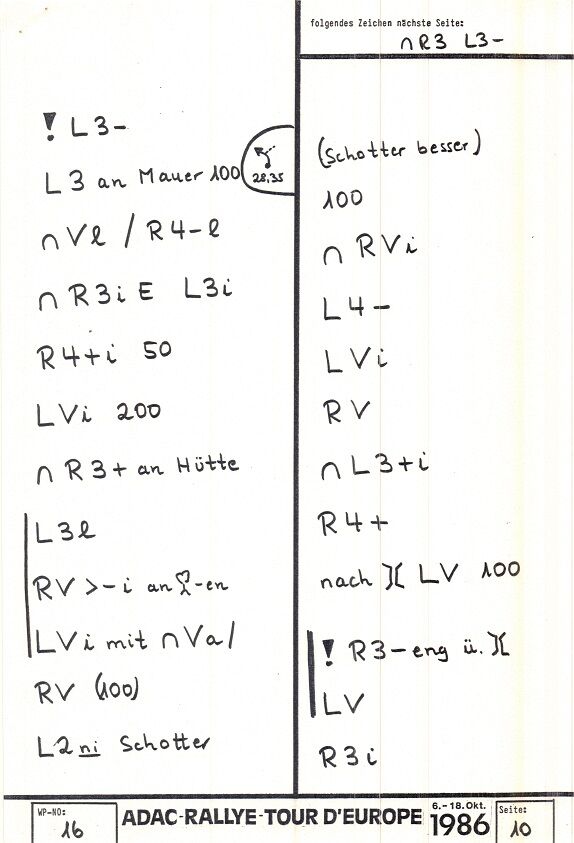 folgendes Zeichen nächste Seite:
∩R3 L3-
! L3-
L3 an Mauer 100
28,35
∩Vl / R4-l
∩ R3i E L3i
R4+i 50
LVi 200
∩ R3+ an Hütte
L3l
RV >-i an -en
LVi mit ∩Va/
RV (100)
L2 ni Schotter
(Schotter besser)
100
∩ RVi
L4-
LVi
RV
∩ L3+i
R4+
nach )( LV 100
! R3-eng ü. )(
LV
R3i
WP-NO:
16
ADAC-RALLYE-TOUR D'EUROPE
6.-18.Okt.
1986
Seite:
10